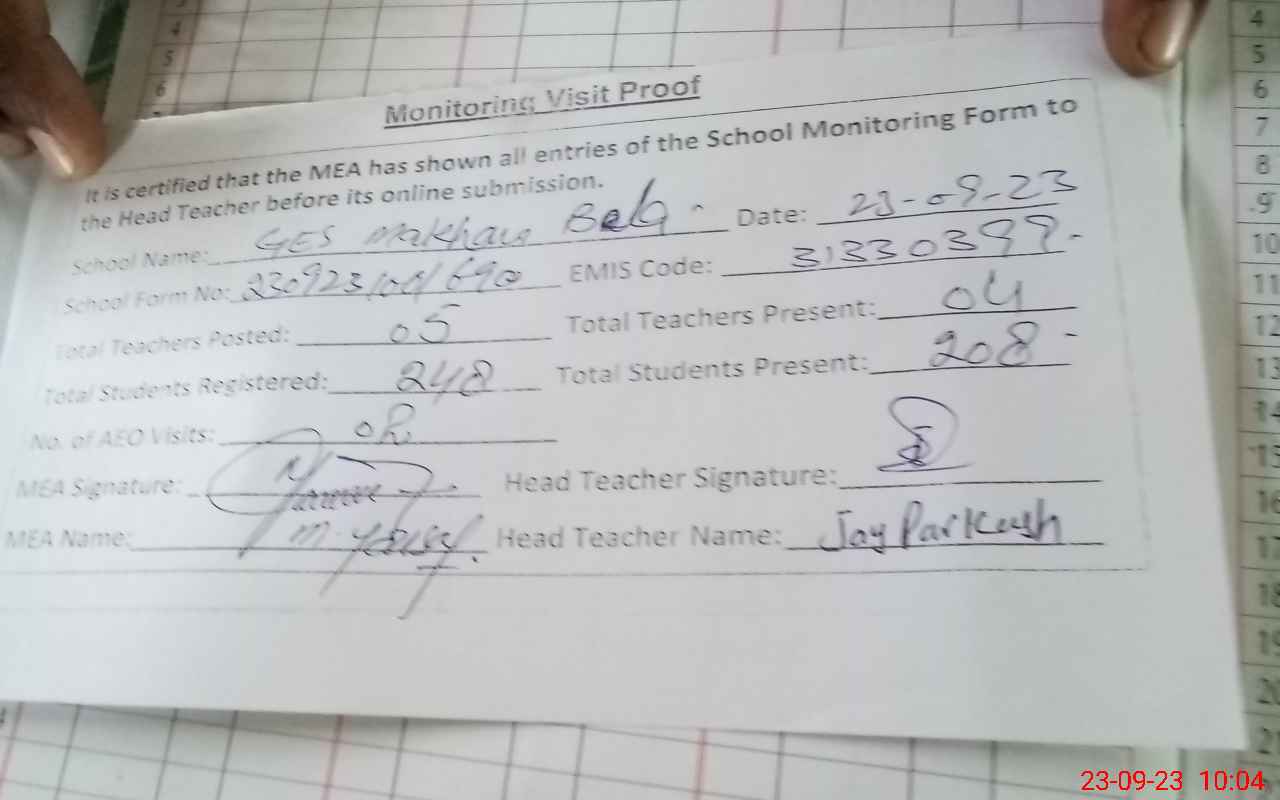 4
5
6
Monitoring Visit Proof
It is certified that the MEA has shown all entries of the School Monitoring Form to
the Head Teacher before its online submission.
School Name: GES Makhan Bela Date: 23-09-23
School Form No: 230923 EMIS Code: 31330399
Total Teachers Posted: 05 Total Teachers Present: 04
Total Students Registered: 248 Total Students Present: 208
No. of AEO Visits:
MEA Signature: Head Teacher Signature:
MEA Name: M. Yousaf Head Teacher Name: Jay Parkash
4
5
6
7
8
9
10
11
12
13
14
15
16
17
18
19
20
21
23-09-23 10:04